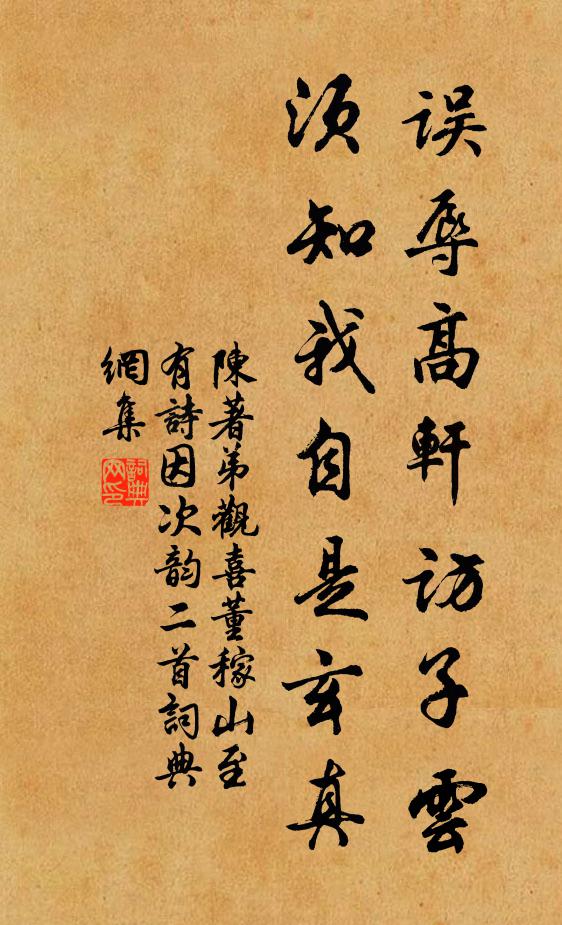 误辱高軒訪子雲
须知我自是玄真
陳著弟觀喜董稼山至
有詩因次韵二首詞典
網集
詞典
网印